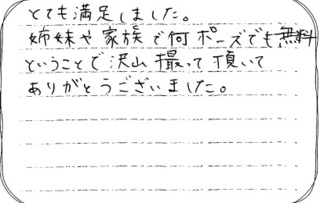 とても満足しました。
姉妹や家族で何ポーズでも無料
ということで沢山撮って頂いて
ありがとうございました。